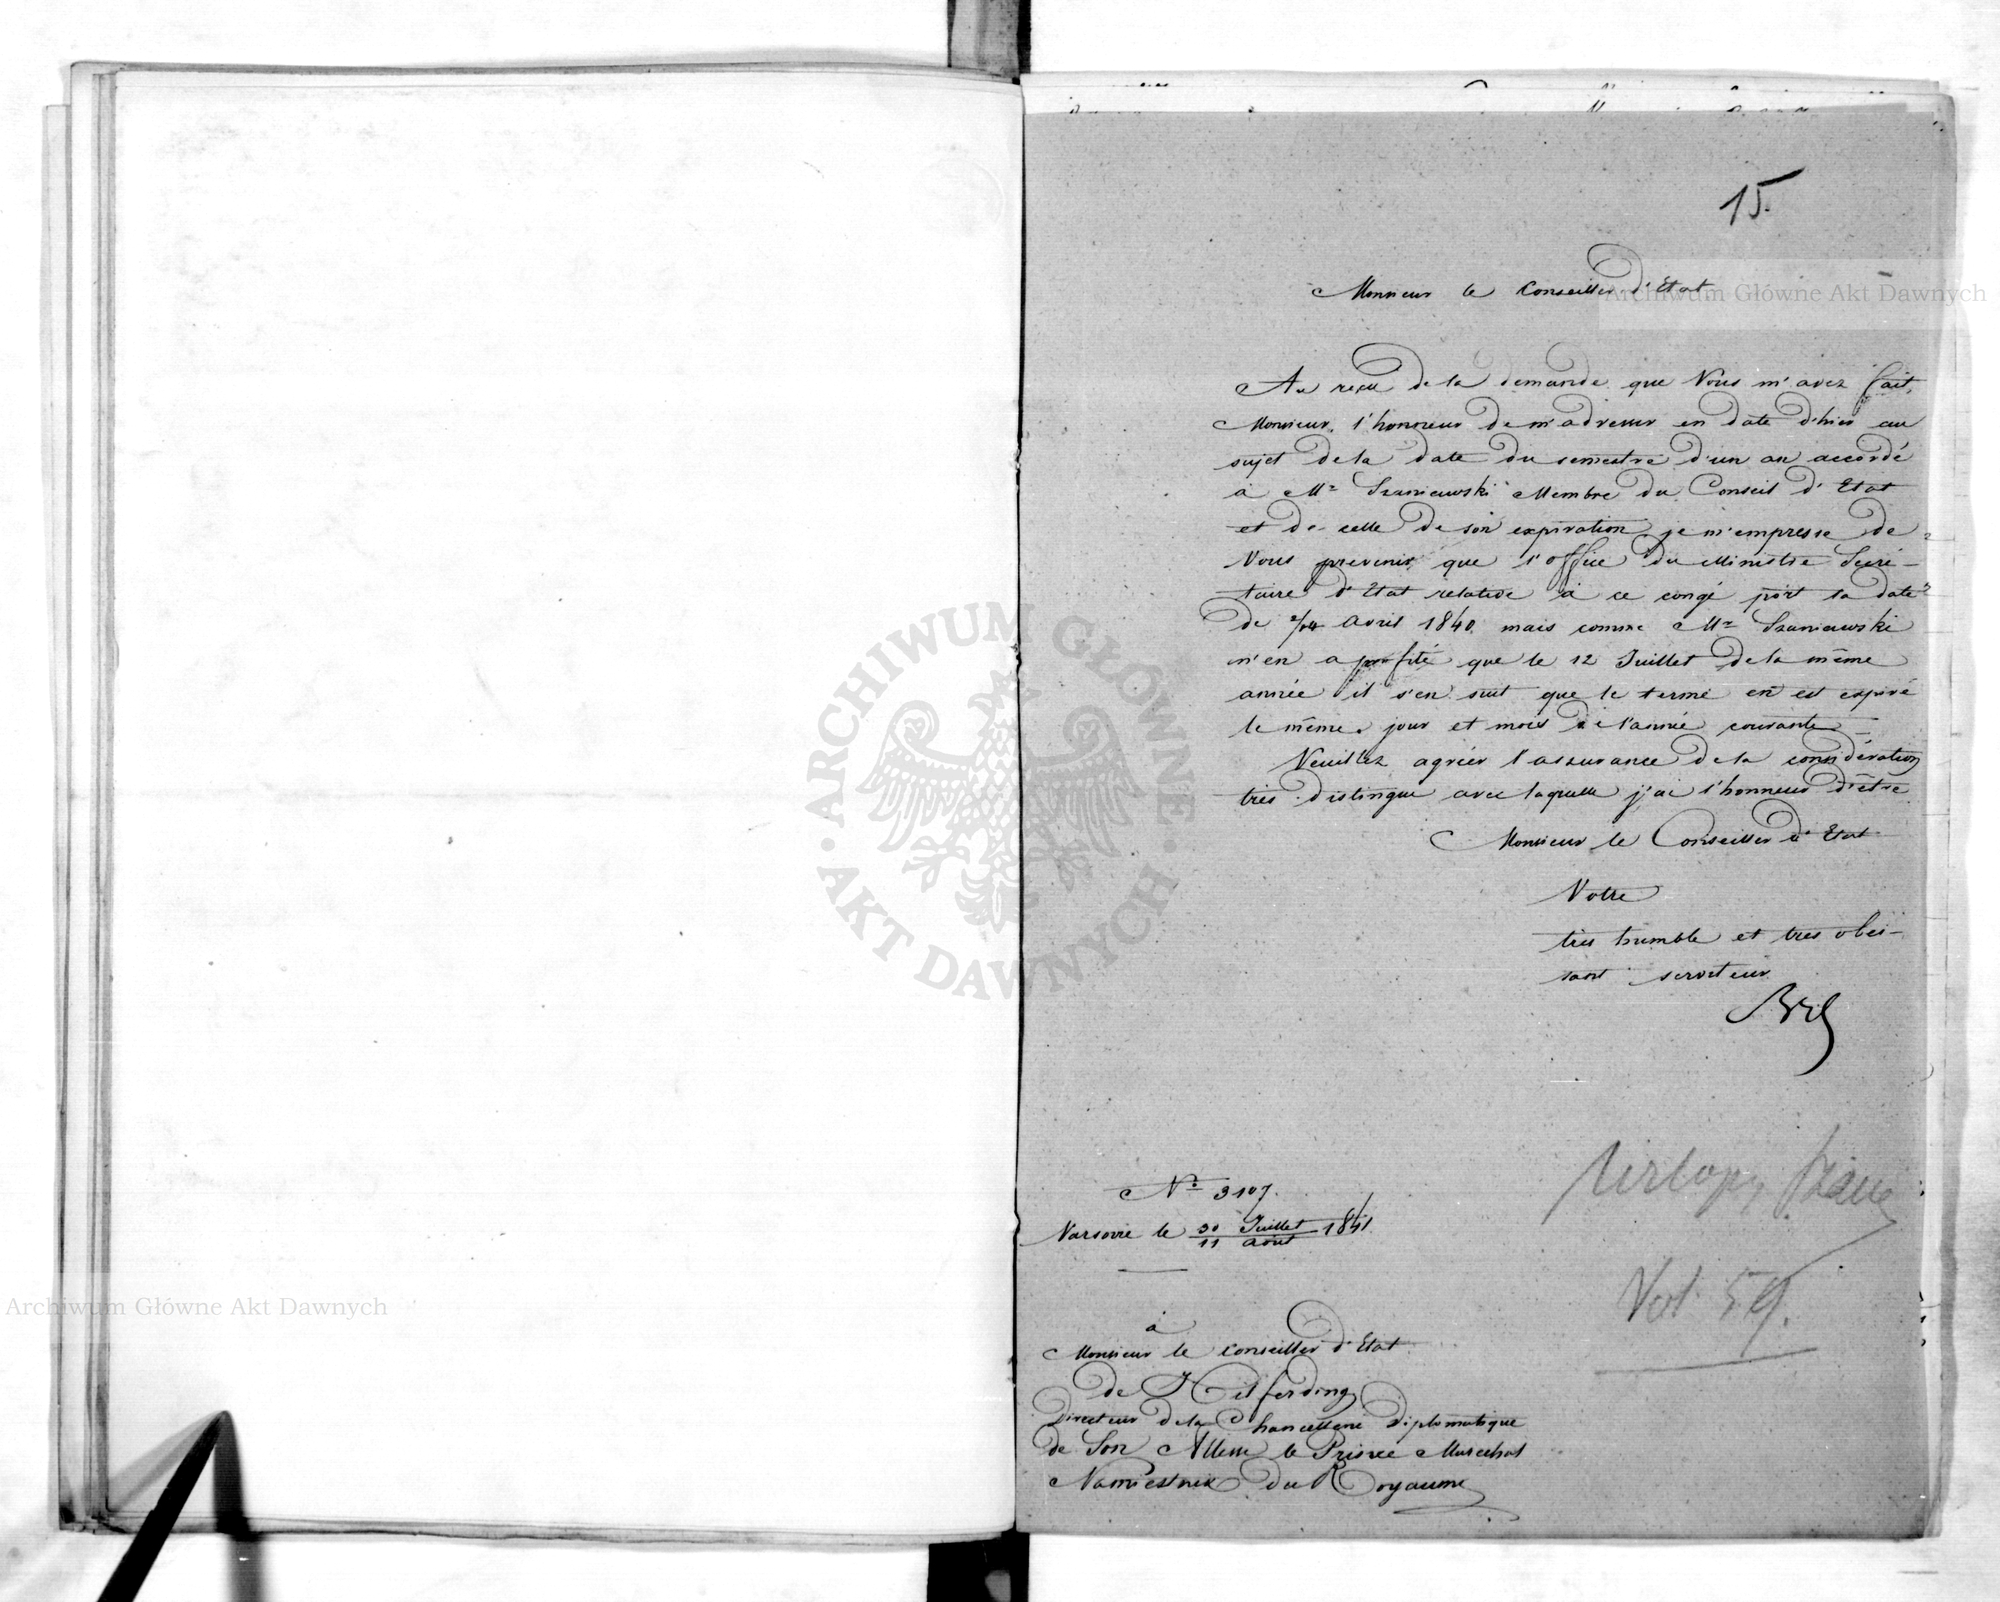 15.
Monsieur le Conseiller d'Etat
Au reçu de la demande que Vous m'avez fait,
Monsieur, l'honneur de m'adresser en date d'hier au
sujet de la date du semestre d'un an accordé
à Mr Szaniawski Membre du Conseil d'Etat
et de celle de son expiration je m'empresse de
Vous prevenir que l'office du Ministre Secré-
taire d'Etat relative à ce congé port la date
de 2/14 Avril 1840. mais comme Mr Szaniawski
n'en a profité que le 12 Juillet de la même
année il s'en suit que le terme en est expiré
le même jour et mois de l'année courante
Veuillez agréer l'assurance de la considération
très distingue avec laquelle j'ai l'honneur d'être
Monsieur le Conseiller d'Etat
Votre
très humble et tres obeis-
sant serviteur
No 3107.
Varsovie le 30 Juillet / 11 Aout 1841
à
Monsieur le Conseiller d'Etat
de Hilferding
Directeur de la Chancellerie diplomatique
de Son Altesse le Prince Marechal
Namiestnik du Royaume
Vol 59.
Archiwum Główne Akt Dawnych
Archiwum Główne Akt Dawnych
ARCHIWUM GŁÓWNE AKT DAWNYCH